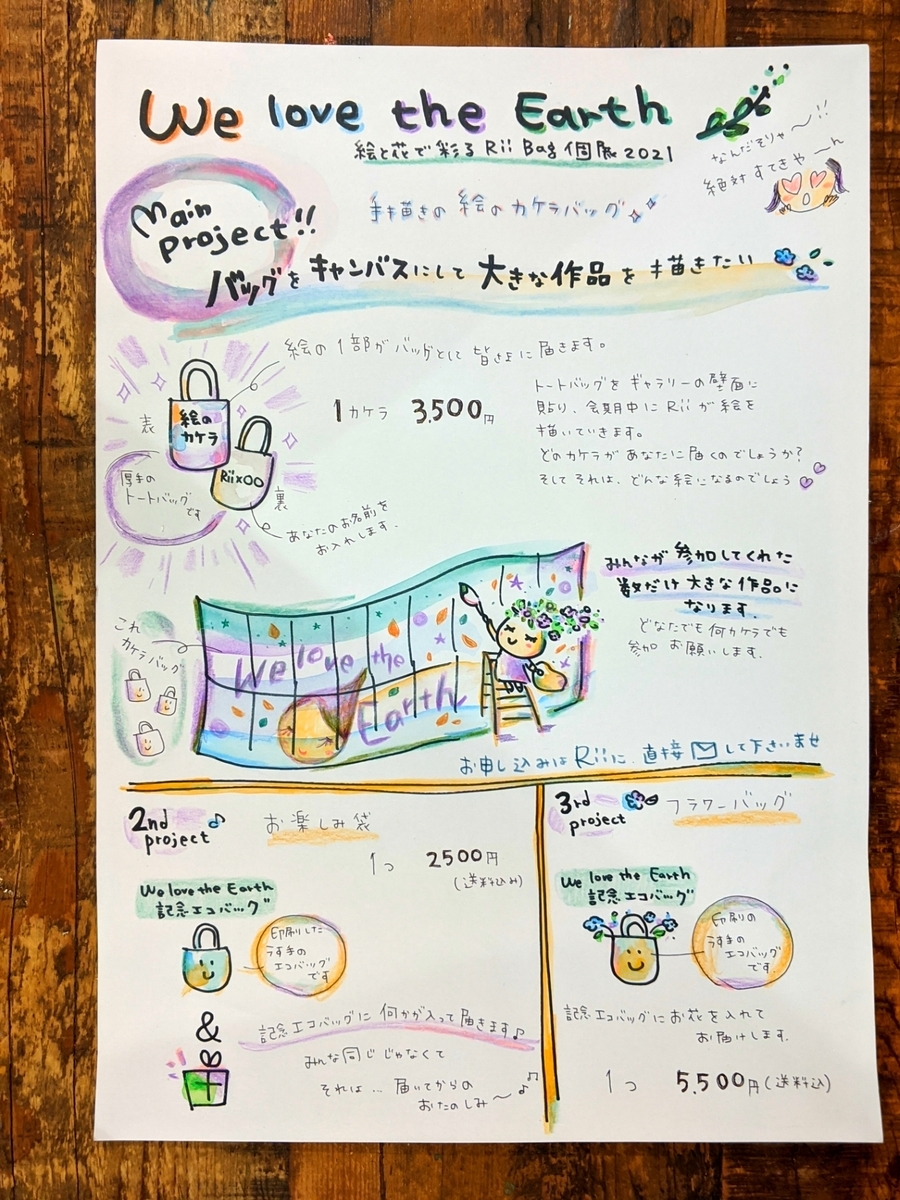 We love the Earth
絵と花で彩る Rii Bag 個展 2021
なんだそりゃ〜!!
絶対すてきや〜ん
Main
project!!
手描きの絵のカケラバッグ
バッグをキャンバスにして大きな作品を描きたい
絵の1部がバッグとして皆さまに届きます。
表
絵の
カケラ
Rii×〇〇
裏
厚手の
トートバッグ
です
あなたのお名前を
お入れします.
1カケラ 3,500円
トートバッグをギャラリーの壁面に
貼り、会期中にRiiが絵を
描いていきます。
どのカケラがあなたに届くのでしょうか?
そしてそれは、どんな絵になるのでしょう
これ
カケラバッグ
We love the
Earth
みんなが参加してくれた
数だけ大きな作品に
なります.
どなたでも何カケラでも
参加お願いします.
お申し込みはRiiに.直接して下さいませ
2nd
project♪
お楽しみ袋
1つ 2500円
(送料込み)
We love the Earth
記念エコバッグ
印刷した
うす手の
エコバッグ
です
&
記念エコバッグに何かが入って届きます♪
みんな同じじゃなくて
それは…届いてからの
おたのしみ〜♪♫
3rd
project
フラワーバッグ
We love the Earth
記念エコバッグ
印刷の
うす手の
エコバッグ
です
記念エコバッグにお花を入れて
お届けします.
1つ 5,500円(送料込)